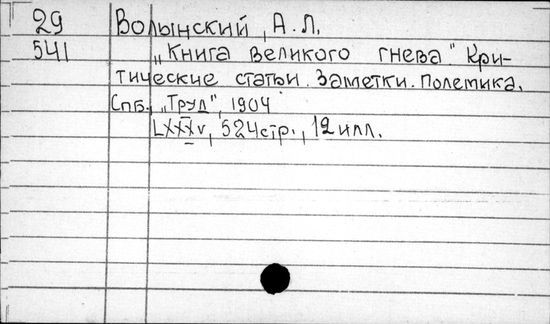 29 Волынский, А.Л.
541 „Книга великого гнева." Кри-
тические статьи. Заметки. Полемика.
Спб., „Труд", 1904
LXXXV, 524стр., 12 илл.